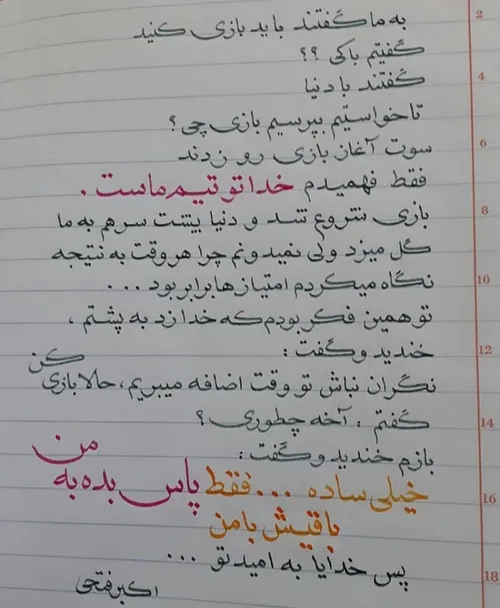 به ما گفتند باید بازی کنید
گفتیم با کی ؟؟
گفتند با دنیا
تا خواستیم بپرسیم بازی چی ؟
سوت آغاز بازی رو زدند
فقط فهمیدم خدا تو تیم ماست .
بازی شروع شد و دنیا پشت سرهم به ما
گل میزد ولی نمیدونم چرا هر وقت به نتیجه
نگاه میکردم امتیازها برابر بود . . .
تو همین فکر بودم که خدا زد به پشتم ،
خندید و گفت :
نگران نباش تو وقت اضافه میبریم ، حالا بازی کن
گفتم : آخه چطوری ؟
بازم خندید و گفت :
خیلی ساده . . . فقط پاس بده به من
باقیش با من
پس خدایا به امید تو . . .
اکبر فتحی
2
4
6
8
10
12
14
16
18